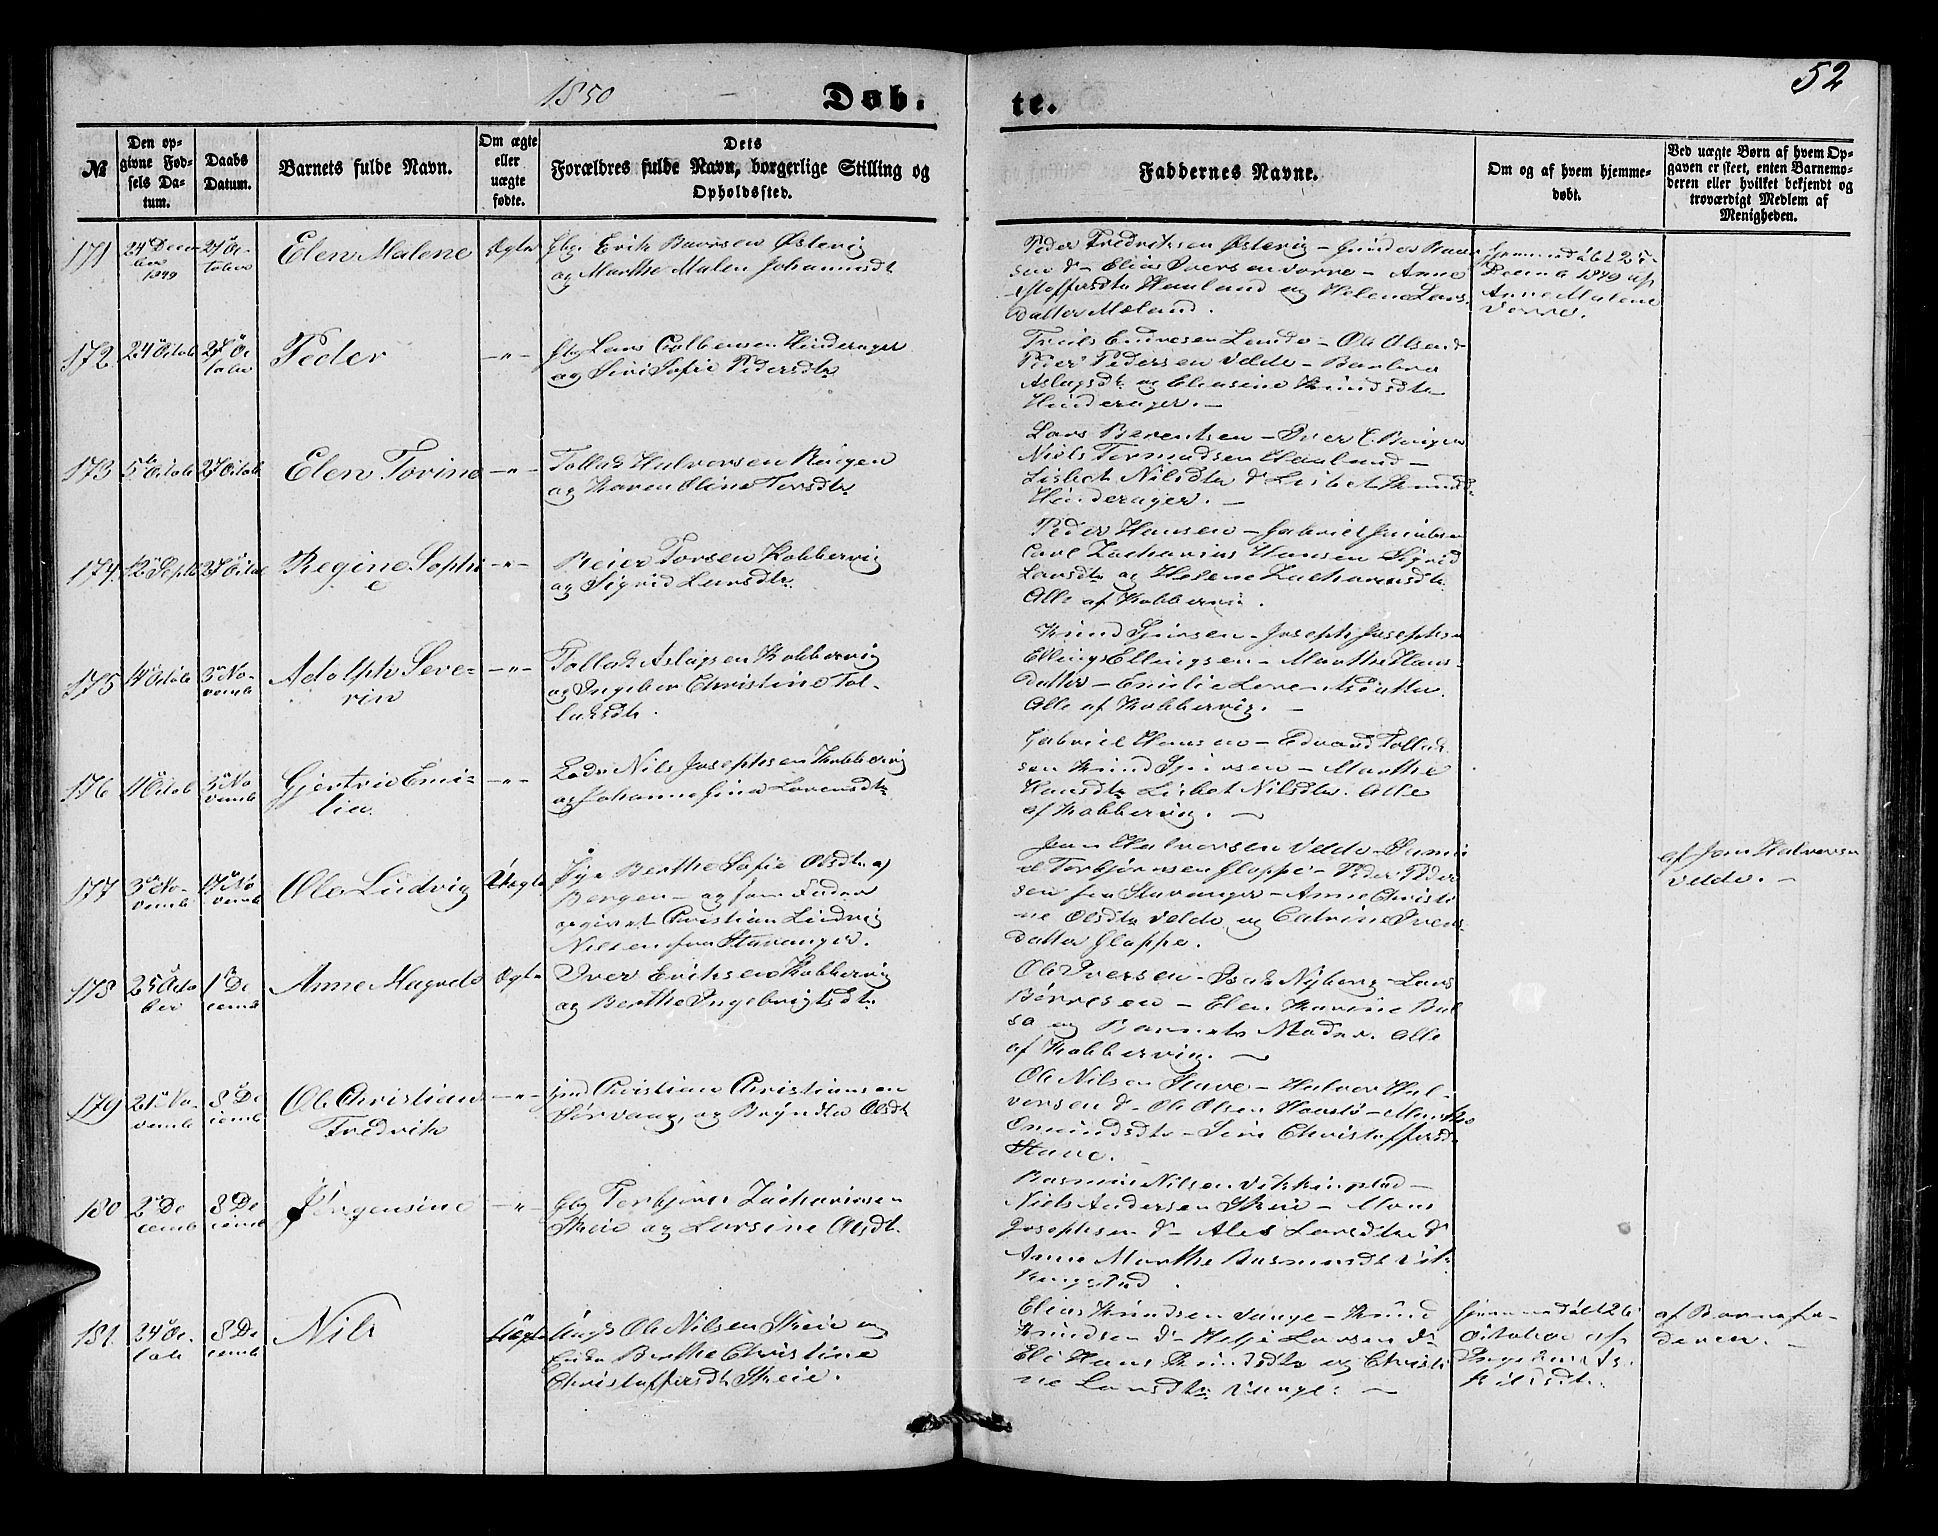 1850
Døb-
te.
52
№
Den op-
givne Fød-
sels Da-
tum.
Daabs
Datum.
Barnets fulde Navn.
Om ægte
eller
uægte
fødte.
Dets
Forældres fulde Navn, borgerlige Stilling og
Opholdssted.
Faddernes Navne.
Om og af hvem hjemme-
døbt.
Ved uægte Børn af hvem Op-
gaven er skeet, enten Barnemo-
deren eller hvilket bekjendt og
troværdigt Medlem af
Menigheden.
171
24 Decem-
ber
1849
27 Oc-
tober
Elen Malene
Ægte
Gbr Erik Østevig
og Marthe Malen Johannesdt
Peder Fredriksen Østevig
Elias Iversen Vorre - Anne
Haaland og Helene Lars-
datter Mæland.
Hjemmedøbt 25
Decemb 1849 af
Anne Malene
Vorre.
172
24 Octob
27 Oc
tober
Peder
-"-
Gbr Lars Hinderager
og Siri Sofie Pedersdtr
Troels Endresen Lunde - Ole Olsen
Peder Pedersen Velde - Barbro
Aslagsdt og Elensine Knudsdtr
Hinderager. -
173
5te Octob
27 Octob
Elen Torine
-"-
Tollak Halvorsen Ringen
og Karen Oline Torsdtr
Lars Berentsen - Iver
Niels Tormodsen Haaland -
Lisbet Nilsdtr Lisbet Knudsd
Hinderager. -
174
12 Septb
27 Octob
Regine Sophi
e
-"-
Reier Torsen Kobbervig
og Sigrid Larsdtr
Peder Hansen - Gabriel Jacobsen
Carl Zacharias Hansen Sigrid
Larsdtr og Helene Zachariasdtr
Alle af Kobbervig.
175
14 Octob
3 No-
vemb
Adolph Seve-
rin
-"-
Tollak Aslagsen Kobbervig
og Ingebor Christine Tol-
laksdtr.
Knud Joseph Josephsen
Elling Ellingsen - Marthe Hans-
datter - Emilie Lorentsdatter.
Alle af Kobbervig. -
176
4 Octob
3 No
vemb
Gjertrud Emi-
lia.
-"-
Nils Josephsen Kobbervig
og Johanne Lorensdtr
Gabriel Hansen - Edvard Tollak
sen Knud - Marthe
Hansdtr Lisbet Nilsdtr. Alle
af Kobbervig. -
177
3 No-
vemb
17 No
vemb
Ole Ludvig
Uægte
Pige Berthe Sofie Olsdtr af
Bergen - og som Fader
opgivet Christian Ludvig
Nilsen fra Stavanger.
Jan Halvorsen Velde - Samu
el Torbjørnsen Gloppe - Peder Peder
sen fra Stavanger - Anne Christi
ne Olsdtr Velde og Catrine Ivers
datter Gloppe.
af Jan Halvorsen
Velde. -
178
25 Octo
ber
1 De
cemb
Anne Magrete
Ægte
Iver Eriksen Kobbervig
og Berthe Ingebrigtsdtr
Ole Iversen - Isak Nyborg - Lars
Børresen - Elen Karine
og Barnets Moder. Alle
af Kobbervig. -
179
21 No-
vemb
8 De
cemb
Ole Christian
Fredrik
-"-
Christian Christiansen
Sørvaag, og Olsdt
Ole Nilsen Stave - Halvor Hal-
vorsen Ole Olsen - Marthe
Omundsdtr - Siri Christoffersd
Stave.
180
2 De
cemb
8 De
cemb
Jørgensine
-"-
Gbr Torbjørn Zachariasen
Skeie og Larsine Olsdt.
Rasmus Nilsen
Niels Andersen Skeie - Mons
Josephsen - Ales Larsdtr
Anne Marthe Rasmusdt
181
24 Oc
tob
8 De
cemb
Nils
Uægte
Ungk Ole Nilsen Skeie og
Enke Berthe Christine
Christoffersdt Skeie.
Elias Knudsen Vange - Knud
Knudsen Helje Larsen
Eli Knudsdtr og Christi
ne Larsdtr Vange. -
Hjemmedøbt 26
October af
af Barnefa-
deren. -